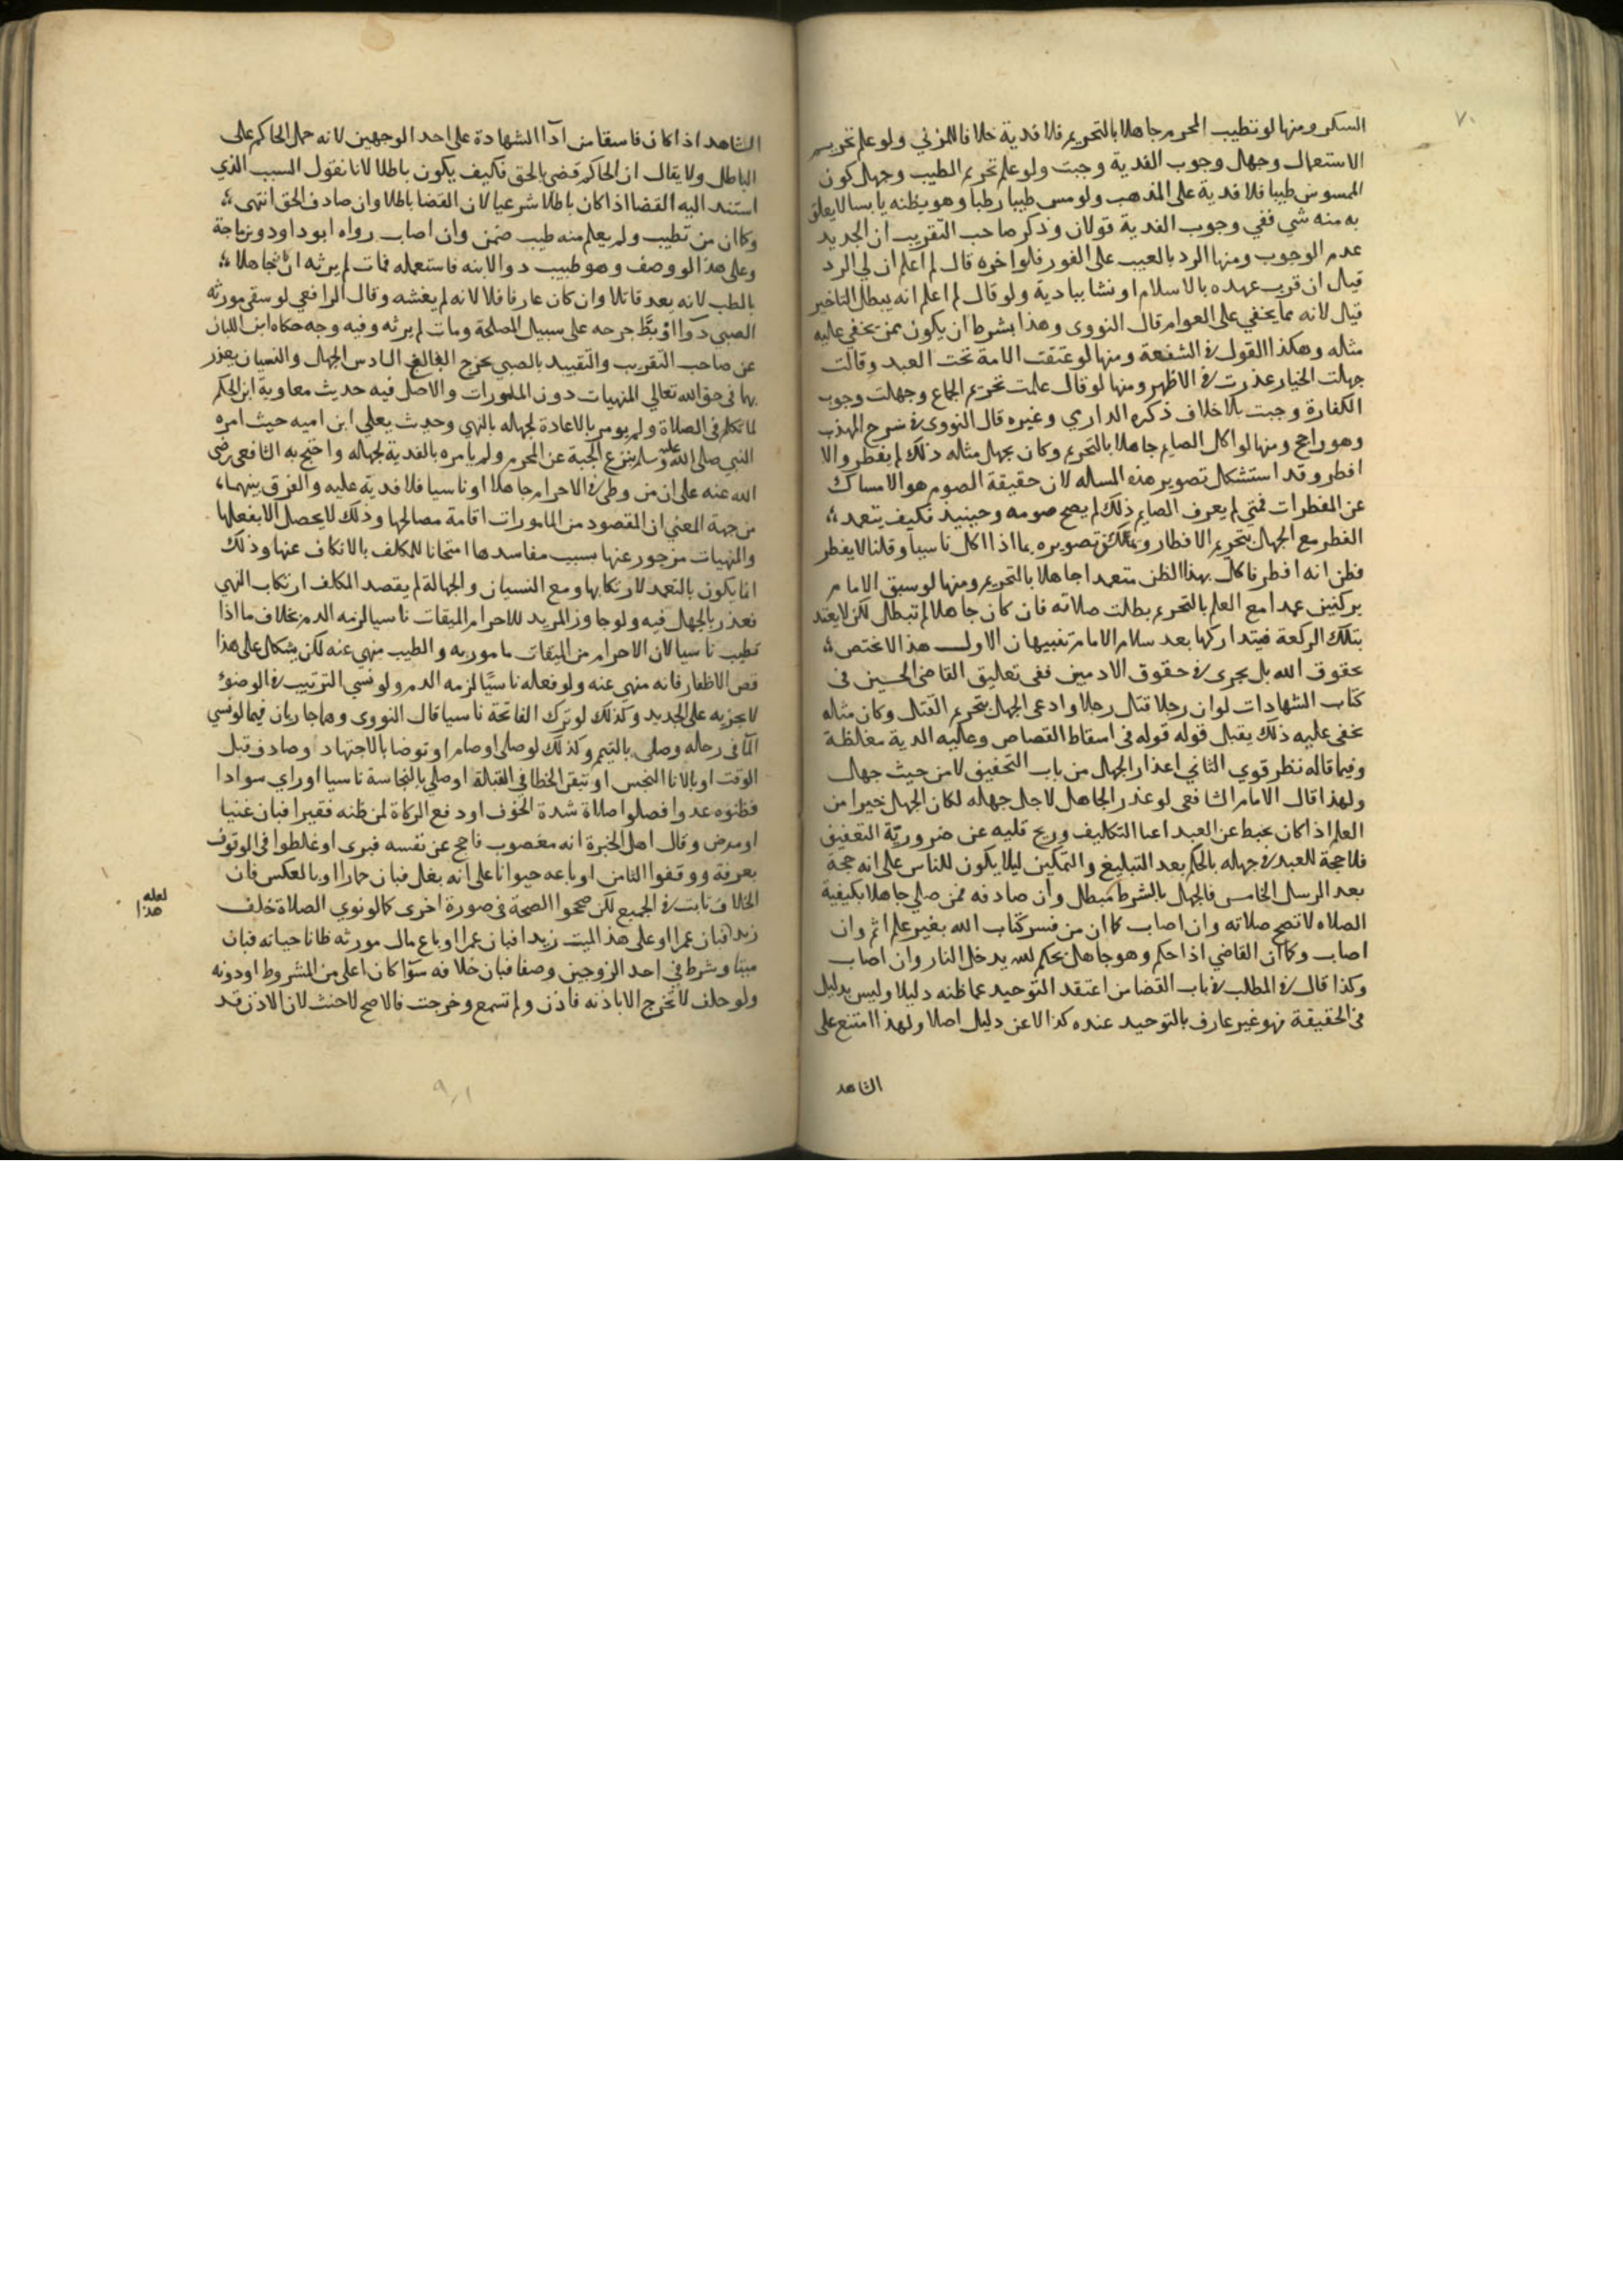 ٧٠
السكر ومنها لو تطيب المحرم جاهلا بالتحريم فلا فدية خلافا للمزني ولو علم تحريم
الاستعمال وجهل وجوب الفدية وجبت ولو علم تحريم الطيب وجهل كون
الممسوس طيبا فلا فدية على المذهب ولو مس طيبا رطبا وهو يظنه يابسا لا يعلق
به منه شي ففي وجوب الفدية قولان وذكر صاحب التقريب ان الجديد
عدم الوجوب ومنها الرد بالعيب على الفور فلو اخره قال لم اعلم ان لي الرد
قبل ان قرب عهده بالاسلام او نشا ببادية ولو قال لم اعلم انه يبطل التاخير
قبل لانه مما يخفي على العوام قال النووى وهذا بشرط ان يكون ممن يخفي عليه
مثله وهكذا القول في الشفعة ومنها لو عتقت الامة تحت العبد وقالت
جهلت الخيار عذرت في الاظهر ومنها لو قال علمت تحريم الجماع وجهلت وجوب
الكفارة وجبت بلا خلاف ذكره الداري وغيره قال النووى في شرح المهذب
وهو راجح ومنها لو اكل الصايم جاهلا بالتحريم وكان يجهل مثله ذلك لم يفطر والا
افطر وقد استشكل تصوير هذه المساله لان حقيقة الصوم هو الامساك
عن المفطرات فمتي لم يعرف الصايم ذلك لم يصح صومه وحينيذ فكيف يتعمد
الفطر مع الجهل بتحريم الافطار ويمكن تصويره بما اذا اكل ناسيا وقلنا لا يفطر
فظن انه افطر فاكل بهذا الظن متعمدا جاهلا بالتحريم ومنها لو سبق الامام
بركنين عمدا مع العلم بالتحريم بطلت صلاته فان كان جاهلا لم تبطل لكن لا يعتد
بتلك الركعة فيتداركها بعد سلام الامام تنبيهان الاول هذا لا يختص
بحقوق الله بل يجرى في حقوق الادميين ففى تعاليق القاضى الحسين فى
كتاب الشهادات لو ان رجلا قتل رجلا وادعى الجهل بتحريم القتل وكان مثله
يخفى عليه ذلك يقبل قوله قوله فى اسقاط القصاص وعليه الدية مغلظة
وفيما قاله نظر قوي الثاني اعذار الجهل من باب التخفيف لا من حيث جهل
ولهذا قال الامام الشافعى لو عذر الجاهل لاجل جهله لكان الجهل خيرا من
العلم اذا كان يحبط عن العبد اعبا التكاليف وريح قلبه عن ضروريّة التعفيف
فلا حجة للعبد في جهله بالحكم بعد التبليغ والتمكين ليلا يكون للناس على انه حجة
بعد الرسل الخامس فالجهل بالشرط مبطل وان صادفه فمن صلي جاهلا بكيفية
الصلاه لا تصح صلاته وان اصاب كما ان من فسر كتاب الله بغير علم اثم وان
اصاب وكما ان القاضي اذا حكم وهو جاهل بحكم الله يدخل النار وان اصاب
وكذا قال في المطلب في باب القضا من اعتقد التوحيد عما ظنه دليلا وليس بدليل
فى الحقيقة فهو غير عارف بالتوحيد عنده كذا لا عن دليل اصلا ولهذا امتنع على
الشاهد
الشاهد اذا كان فاسقا من آدآ الشهادة على احد الوجهين لانه حمل الحاكم على
الباطل ولا يقال ان الحاكم قضى بالحق فكيف يكون باطلا لانا نقول السبب الذي
استند اليه القضا اذا كان باطلا شرعيا كان القضا باطلا وان صادف الحق انتهى
وكما ان من تطبب ولم يعلم منه طب ضمن وان اصاب رواه ابو داود وبن ماجة
وعلى هذا لو وصف وهو طبيب دوا لابنه فاستعمله فمات لم يرثه ان كان جاهلا
بالطب لانه يعد قاتلا وان كان عارفا فلا لانه لم يغشه وقال الرافعي لو سقى مورثه
الصبي دوآ او بَطَّ جرحه على سبيل المصلحة ومات لم يرثه وفيه وجه حكاه ابن اللبان
عن صاحب التقريب والتقييد بالصبي يخرج البالغ السادس الجهل والنسيان يعذر
بهما فى حق الله تعالي المنهيات دون المامورات والاصل فيه حديث معاوية ابن الحكم
لما تكلم فى الصلاة ولم يومر بالاعادة لجهله بالنهي وحديث يعلي ابن اميه حيث امره
النبي صلى الله عليه وسلم بنزع الجبة عن المحرم ولم يامره بالفدية لجهله واحتج به الشافعى رضى
الله عنه على ان من وطي في الاحرام جاهلا او ناسيا فلا فدية عليه والفرق بينهما
من جهة المعني ان المقصود من المامورات اقامة مصالحها وذلك لا يحصل الا بفعلها
والمنهيات مزجور عنها بسبب مفاسدها امتحانا للمكلف بالانكاف عنها وذلك
انما يكون بالتعمد لارتكابها ومع النسيان والجهالة لم يقصد المكلف ارتكاب النهي
فعذر بالجهل فيه ولو جاوز المريد للاحرام الميقات ناسيا لزمه الدم بخلاف ما اذا
تطيب ناسيا لان الاحرام من الميقات مامور به والطيب منهي عنه لكن يشكل على هذا
قص الاظفار فانه منهى عنه ولو فعله ناسيًا لزمه الدم ولو نسي الترتيب في الوضوء
لا يجزيه على الجديد وكذلك لو ترك الفاتحة ناسيا قال النووى وهما جاريان فيما لو نسي
المآ فى رحله وصلى بالتيمم وكذلك لو صلى او صام او توضا بالاجتهاد وصادف قبل
الوقت او بالانا النجس او تيقن الخطا في القبلة او صلي بالنجاسة ناسيا او راي سوادا
فظنوه عدوا فصلوا صلاة شدة الخوف او دفع الزكاة لمن ظنه فقيرا فبان غنيا
او مرض وقال اهل الخبرة انه معضوب فاحج عن نفسه فبرى او غلطوا فى الوقوف
بعرفة ووقفوا الثامن او باعه حيوانا على انه بغل فبان حمارا او بالعكس فان
الخلاف ثابت في الجميع لكن صححوا الصحة فى صورة اخرى كما لو نوي الصلاة خلف
زيد فبان عمرا او على هذا الميت زيدا فبان عمرا او باع مال مورثه ظانا حياته فبان
ميتا وشرط في احد الزوجين وصفا فبان خلافه سوآ كان اعلى من المشروط او دونه
ولو حلف لا تخرج الا باذنه فاذن ولم تسمع وخرجت فالاصح لا حنث لان الاذن قد
لعله
هذا